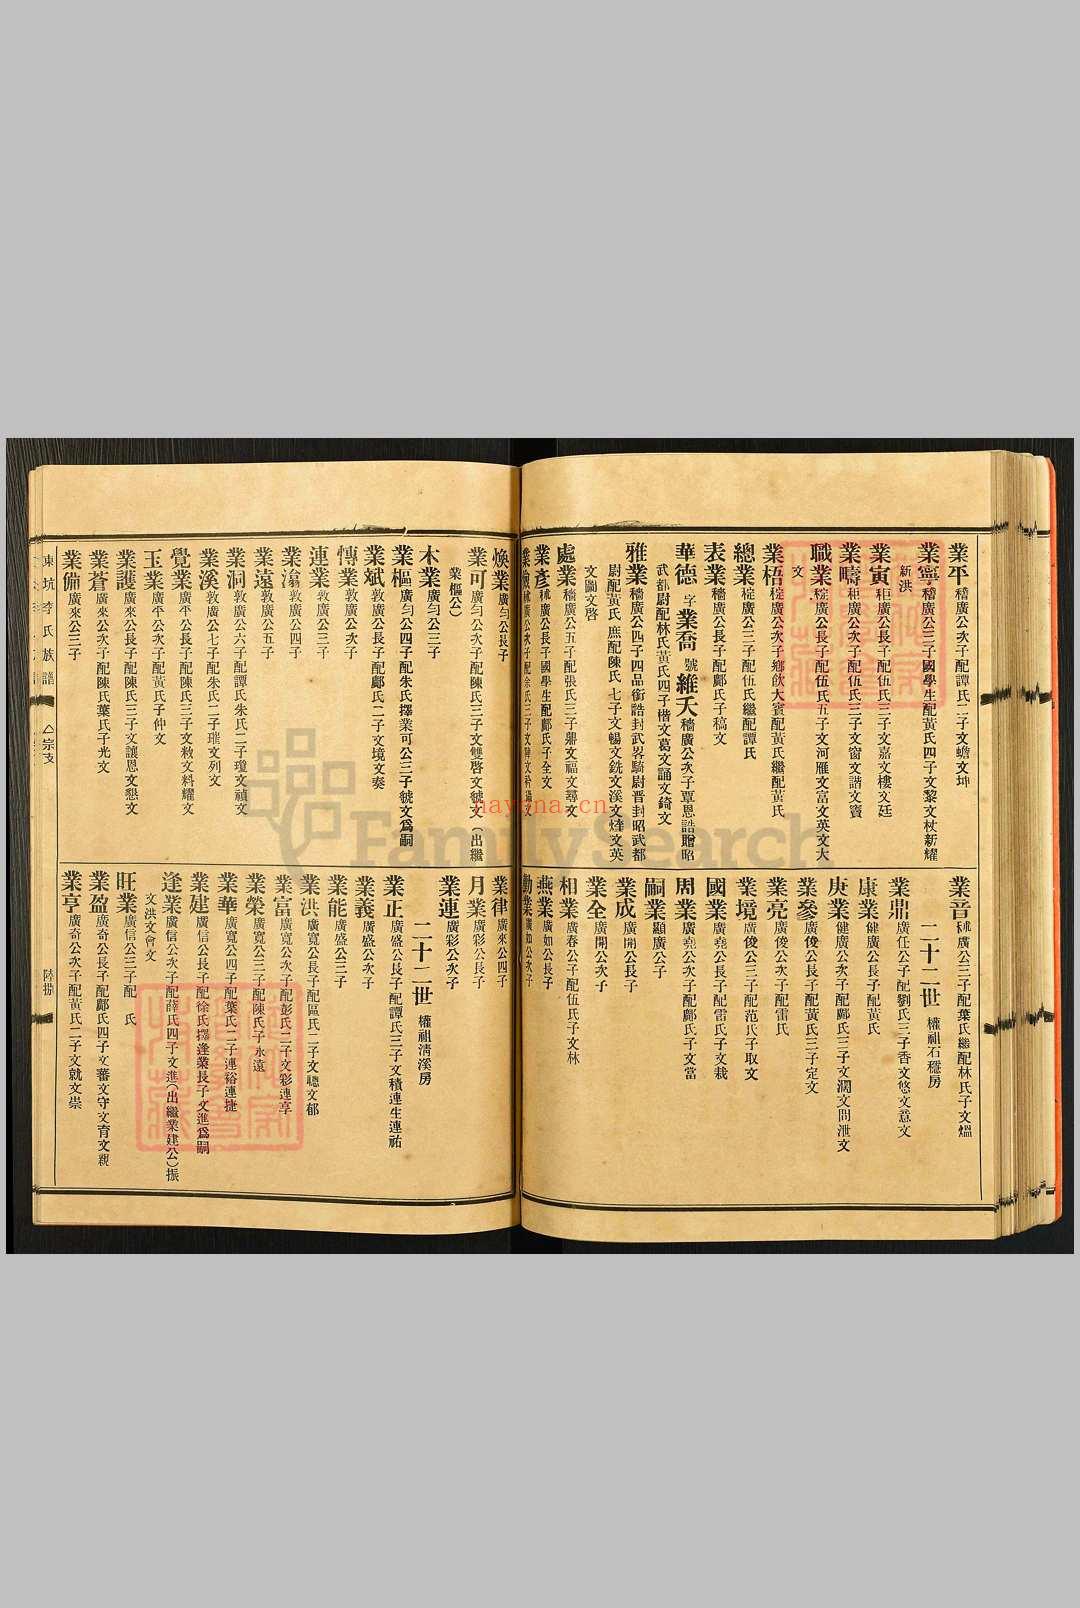 業平 穡廣公次子配譚氏二子文蟾文坤
業寧 穡廣公三子國學生配黃氏四子文黎文杖新耀
新洪
業寅 秬廣公長子配伍氏三子文嘉文樓文廷
業疇 秬廣公次子配伍氏三子文窗文諧文寶
職業 椗廣公長子配伍氏五子文河雁文富文英文大
文
業梧 椗廣公次子鄉飲大賓配黃氏繼配黃氏
總業 椗廣公三子配伍氏繼配譚氏
表業 穡廣公長子配鄺氏子稿文
華德 字 業喬 號 維天 穡廣公次子覃恩誥贈昭
武都尉配林氏黃氏四子楷文葛文誦文錡文
雅業 穡廣公四子四品銜誥封武畧騎尉晋封昭武都
尉配黃氏 庶配陳氏 七子文暢文銑文溪文煒文英
文圖文啓
處業 穡廣公五子配張氏三子鼎文福文尋文
業彥 秫廣公長子國學生配鄺氏子全文
業音 秫廣公三子配葉氏繼配林氏子文熅
二十二世 權祖石穩房
業鼎 廣任公子配劉氏三子香文悠文意文
康業 健廣公長子配黃氏
庚業 健廣公次子配鄺氏三子文濶文問泄文
業參 廣俊公長子配黃氏三子定文
業亮 廣俊公次子配雷氏
業境 廣俊公三子配范氏子取文
國業 廣堯公長子配雷氏子文栽
周業 廣堯公次子配鄺氏子文當
嗣業 顯廣公子
業成 廣開公長子
業全 廣開公次子
相業 廣春公子配伍氏子文林
燕業 廣如公長子
勤業 廣如公次子
煥業 廣勻公長子
業可 廣勻公次子配陳氏三子文雙啓文虢文(出繼
業樞公)
木業 廣勻公三子
業樞 廣勻公四子配朱氏擇業可公三子虢文爲嗣
業斌 敦廣公長子配鄺氏二子文境文奏
慱業 敦廣公次子
連業 敦廣公三子
業湯 敦廣公四子
業遠 敦廣公五子
業洞 敦廣公六子配譚氏朱氏二子瓊文禎文
業溪 敦廣公七子配朱氏二子璀文列文
覺業 廣平公長子配陳氏三子文敉文料耀文
玉業 廣平公次子配黃氏子仲文
業護 廣來公長子配陳氏三子文讓恩文懇文
業蒼 廣來公次子配陳氏葉氏子光文
業備 廣來公三子
業律 廣來公四子
月業 廣彩公長子
業連 廣彩公次子
二十二世 權祖清溪房
業正 廣盛公長子配譚氏三子文積連生連祐
業義 廣盛公次子
業能 廣盛公三子
業洪 廣寬公長子配區氏二子文聰文郁
業富 廣寬公次子配彭氏二子文彩連享
業榮 廣寬公三子配陳氏子永遠
業華 廣寬公四子配葉氏二子連裕連捷
業建 廣信公長子配徐氏擇逢業長子文進爲嗣
逢業 廣信公次子配薛氏四子文進(出繼業建公)振
文洪文會文
旺業 廣信公三子配 氏
業盈 廣奇公長子配鄺氏四子文蕃文守文育文親
業亨 廣奇公次子配黃氏二子文就文崇
東坑李氏族譜
宗支
陸捌
FamilySearch
hayona.cn